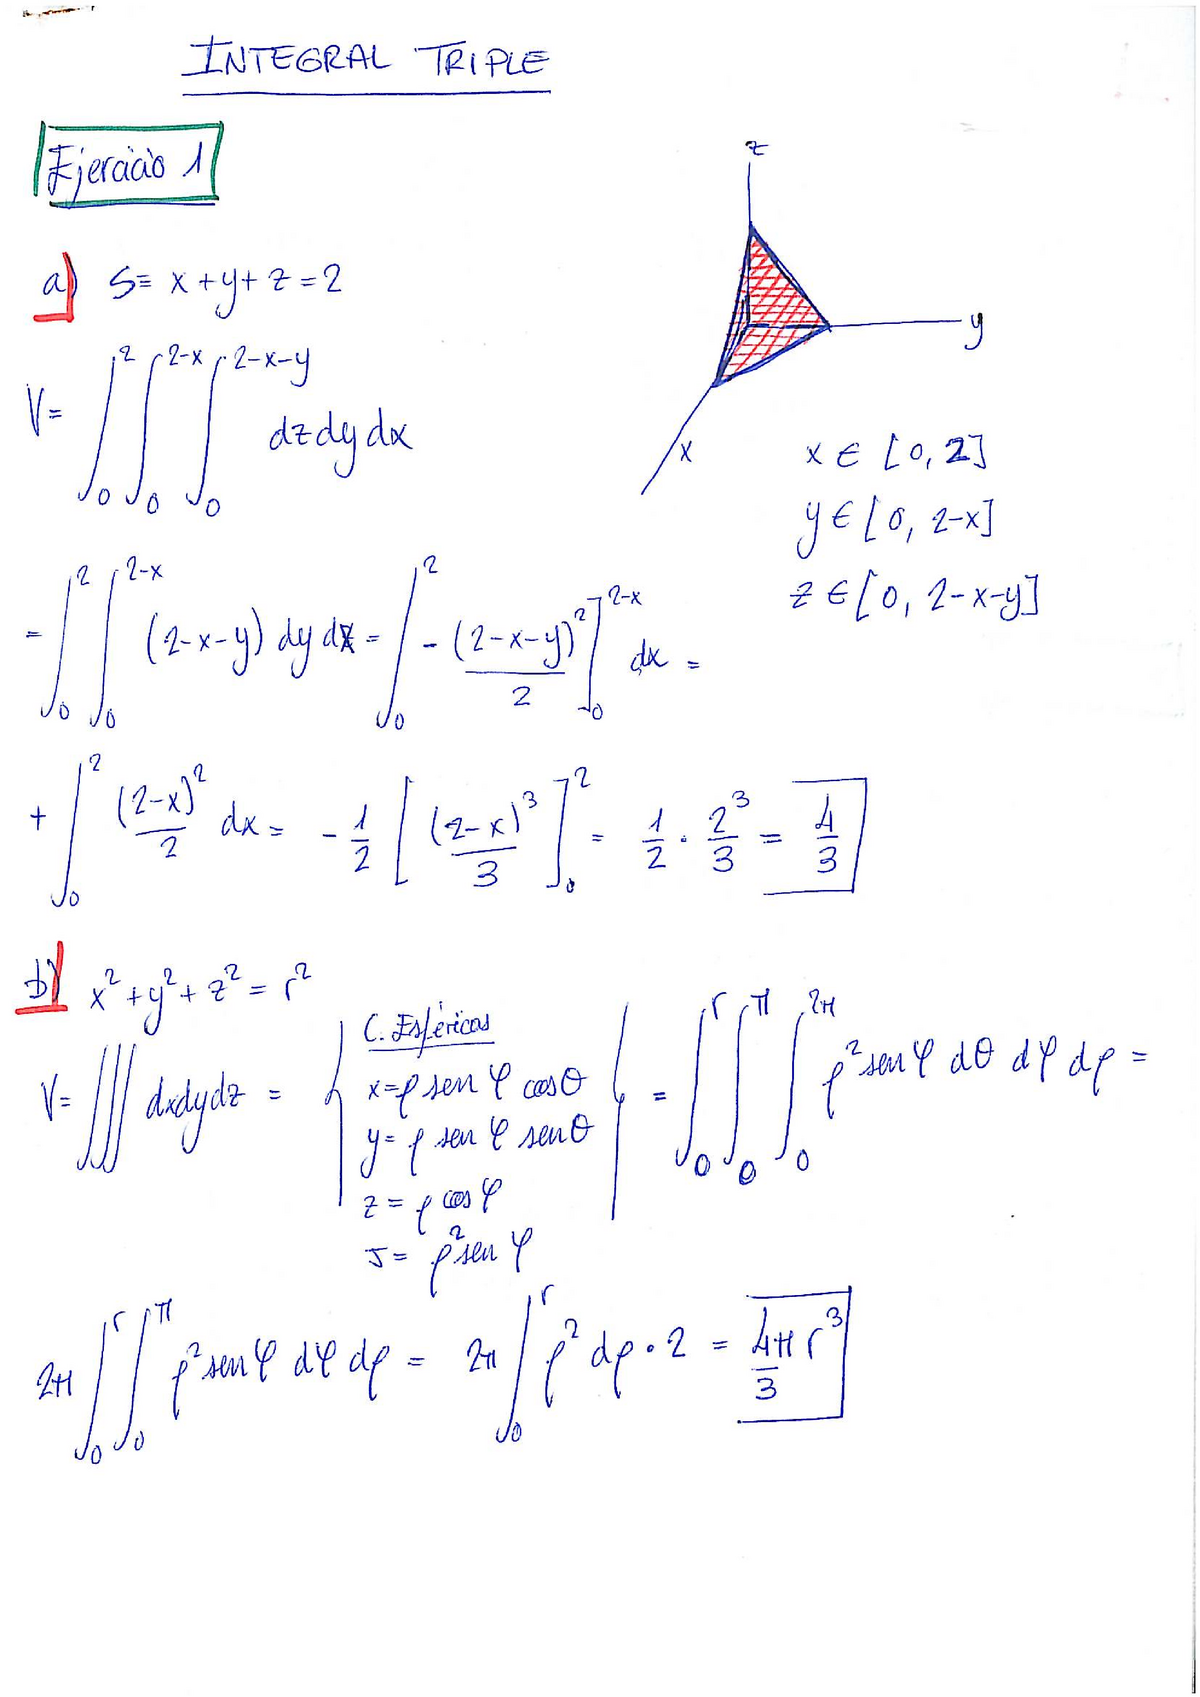 INTEGRAL TRIPLE
Ejercicio 1
z
y
x
a) S≡ x+y+z=2
V= ∫₀² ∫₀^{2-x} ∫₀^{2-x-y} dz dy dx
x ∈ [0, 2]
y ∈ [0, 2-x]
z ∈ [0, 2-x-y]
= ∫₀² ∫₀^{2-x} (2-x-y) dy dx = ∫₀² - (2-x-y)²/2 ]₀^{2-x} dx =
+ ∫₀² (2-x)²/2 dx = - 1/2 [ (2-x)³/3 ]₀² = 1/2 · 2³/3 = 4/3
b) x²+y²+z² = r²
V= ∭ dxdydz = { C. Esféricas
x=ρ sen φ cos θ
y= ρ sen φ sen θ
z = ρ cos φ
J = ρ² sen φ
} = ∫₀^r ∫₀^π ∫₀^{2π} ρ² sen φ dθ dφ dρ =
2π ∫₀^r ∫₀^π ρ² sen φ dφ dρ = 2π ∫₀^r ρ² dρ · 2 = 4π/3 r³